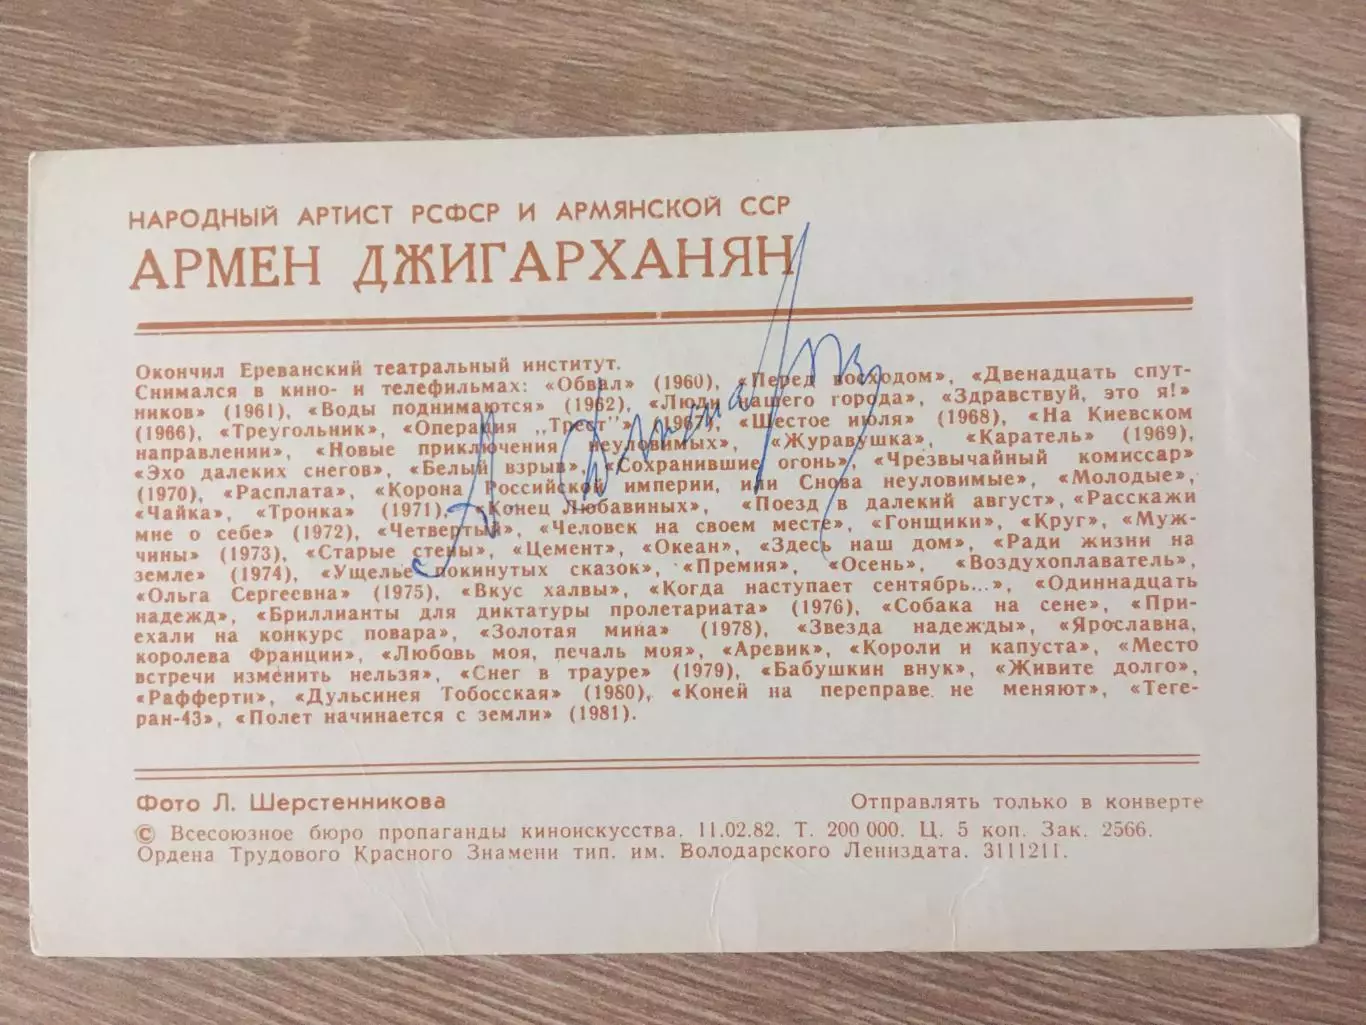 НАРОДНЫЙ АРТИСТ РСФСР И АРМЯНСКОЙ ССР
АРМЕН ДЖИГАРХАНЯН
Окончил Ереванский театральный институт.
Снимался в кино- и телефильмах: «Обвал» (1960), «Перед восходом», «Двенадцать спут-
ников» (1961), «Воды поднимаются» (1962), «Люди нашего города», «Здравствуй, это я!»
(1966), «Треугольник», «Операция „Трест"» (1967), «Шестое июля» (1968), «На Киевском
направлении», «Новые приключения неуловимых», «Журавушка», «Каратель» (1969),
«Эхо далеких снегов», «Белый взрыв», «Сохранившие огонь», «Чрезвычайный комиссар»
(1970), «Расплата», «Корона Российской империи, или Снова неуловимые», «Молодые»,
«Чайка», «Тронка» (1971), «Конец Любавиных», «Поезд в далекий август», «Расскажи
мне о себе» (1972), «Четвертый», «Человек на своем месте», «Гонщики», «Круг», «Муж-
чины» (1973), «Старые стены», «Цемент», «Океан», «Здесь наш дом», «Ради жизни на
земле» (1974), «Ущелье покинутых сказок», «Премия», «Осень», «Воздухоплаватель»,
«Ольга Сергеевна» (1975), «Вкус халвы», «Когда наступает сентябрь...», «Одиннадцать
надежд», «Бриллианты для диктатуры пролетариата» (1976), «Собака на сене», «При-
ехали на конкурс повара», «Золотая мина» (1978), «Звезда надежды», «Ярославна,
королева Франции», «Любовь моя, печаль моя», «Аревик», «Короли и капуста», «Место
встречи изменить нельзя», «Снег в трауре» (1979), «Бабушкин внук», «Живите долго»,
«Рафферти», «Дульсинея Тобосская» (1980), «Коней на переправе не меняют», «Теге-
ран-43», «Полет начинается с земли» (1981).
Фото Л. Шерстенникова
Отправлять только в конверте
© Всесоюзное бюро пропаганды киноискусства. 11.02.82. Т. 200 000. Ц. 5 коп. Зак. 2566.
Ордена Трудового Красного Знамени тип. им. Володарского Лениздата. 3111211.